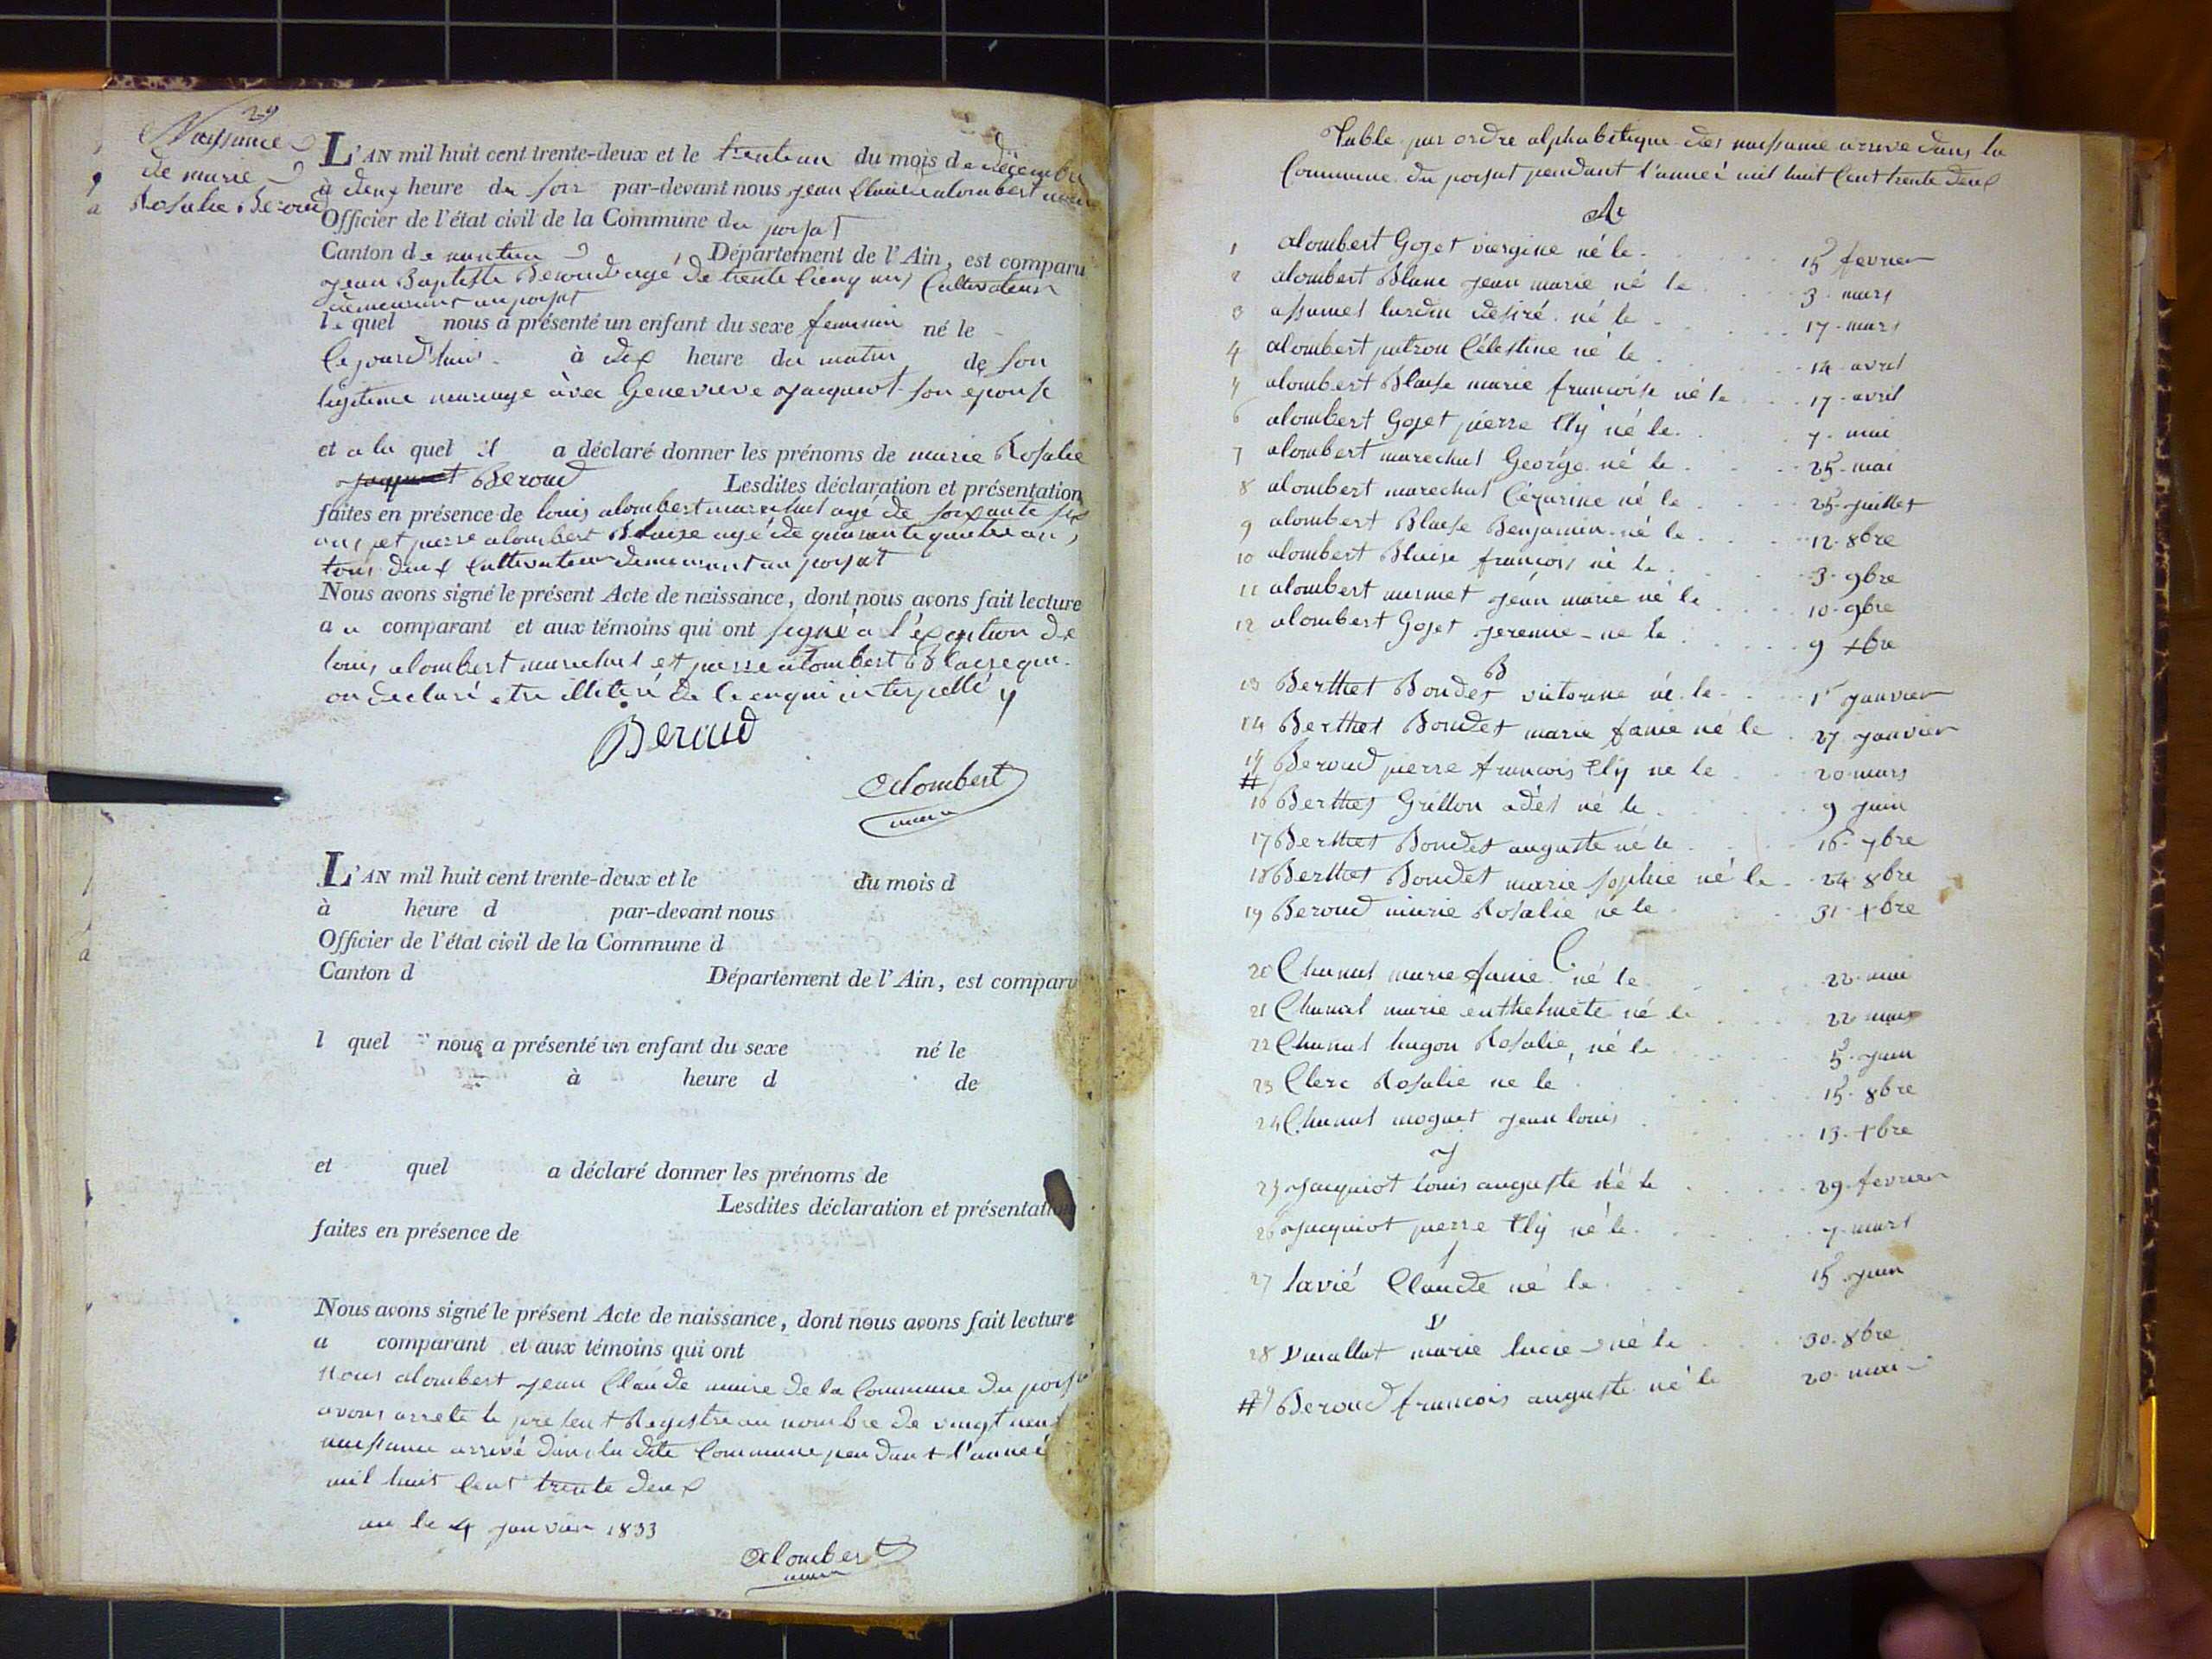 29
Naissance
de marie
Rosalie Beroud
L'AN mil huit cent trente-deux et le trenteun du mois de décembre
à deux heure du soir par-devant nous jean Claude alombert maire
Officier de l'état civil de la Commune du poisat
Canton de nantua Département de l'Ain, est comparu
jean Baptiste Beroud agé de trente cinq ans Cultivateur
demeurant au poisat
le quel nous a présenté un enfant du sexe feminin né le
cejourd'hui à dix heure du matin de son
légitime mariage avec Genevieve jacquiot son épouse
et a la quel il a déclaré donner les prénoms de marie Rosalie
Beroud Lesdites déclaration et présentation
faites en présence de louis alombert marechal agé de soixante six
ans et pierre alombert Blaise agé de quarante quatre ans,
tous deux Cultivateur demeurant au poisat
Nous avons signé le présent Acte de naissance, dont nous avons fait lecture
au comparant et aux témoins qui ont signé a l'éxception de
louis alombert marechal et pierre alombert Blaise qui
on declaré etre illitéré de ce enqui interpellé
Beroud
alombert
maire
L'AN mil huit cent trente-deux et le du mois d
à heure d par-devant nous
Officier de l'état civil de la Commune d
Canton d Département de l'Ain, est comparu
l quel nous a présenté un enfant du sexe né le
à heure d de
et quel a déclaré donner les prénoms de
Lesdites déclaration et présentation
faites en présence de
Nous avons signé le présent Acte de naissance, dont nous avons fait lecture
a comparant et aux témoins qui ont
Nous alombert jean Claude maire de la Commune du poisat
avons arreté le present Registre au nombre de vingt neuf
naissance arrivé dans la dite Commune pendant l'anneé
mil huit Cent trente deux
le 4 janvier 1833
alombert
maire
Table par ordre alphabetique des naissance arrivé dans la
Commune du poisat pendant l'anneé mil huit Cent trente deux
A
1 alombert Gojet viergine né le 15 fevrier
2 alombert Blanc jean marie né le 3 mars
3 assumel lurdin désiré né le 17 mars
4 alombert patron Célestine né le 14 avril
5 alombert Blaise marie francoise né le 17 avril
6 alombert Gojet pierre Ely né le 7 mai
7 alombert marechal George né le 25 mai
8 alombert marechal Cézarine né le 25 juillet
9 alombert Blaise Benjamin né le 12 8bre
10 alombert Blaise françois né le 3 9bre
11 alombert mermet jean marie né le 10 9bre
12 alombert Gojet jeremie né le 9 xbre
B
13 Berthet Boudet victorine né le 1r janvier
14 Berthet Boudet marie fanie né le 27 janvier
15 Beroud pierre francois Ely né le 20 mars
#
16 Berthet Grillon adél né le 9 juin
17 Berthet Boudet auguste né le 16 7bre
18 Berthet Boudet marie sophie né le 24 8bre
19 Beroud marie Rosalie né le 31 xbre
C
20 Chanal marie fanie né le 22 mai
21 Chanal marie né le 22 mai
22 Chanal hugon Rosalie né le 5 juin
23 Clerc Rosalie né le 15 8bre
24 Chanal moguet jean louis 13 xbre
J
25 jacquiot louis auguste né le 29 fevrier
26 jacquiot pierre Ely né le 7 mars
l
27 lavié Claude né le 15 juin
V
28 Vuallat marie lucie né le 30 8bre
# 29 Beroud francois auguste né le 20 mai